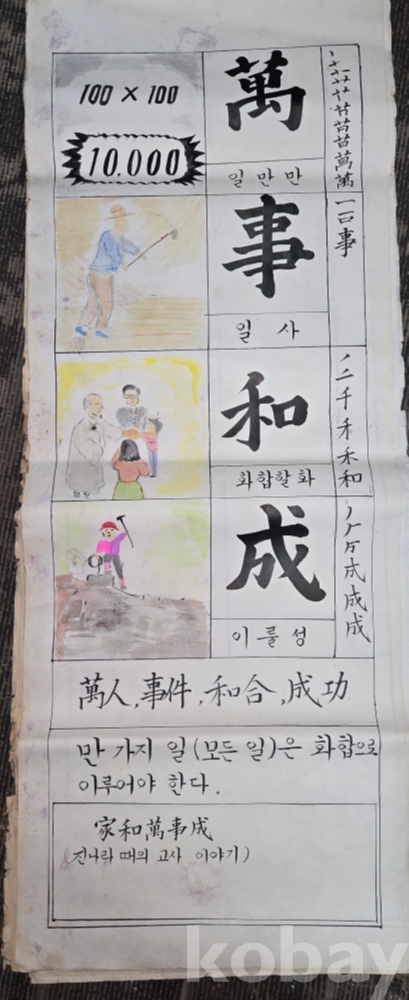 100 × 100
10,000
萬
일만만
事
일 사
一 口 事
和
화합할화
ノ 二 千 禾 禾 和
成
이룰성
萬人, 事件, 和合, 成功
만 가지 일(모든 일)은 화합으로
이루어야 한다.
家和萬事成
(진나라 때의 고사 이야기)
kobay